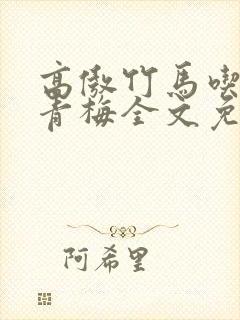 高傲竹马喫
青梅全文免
阿希里